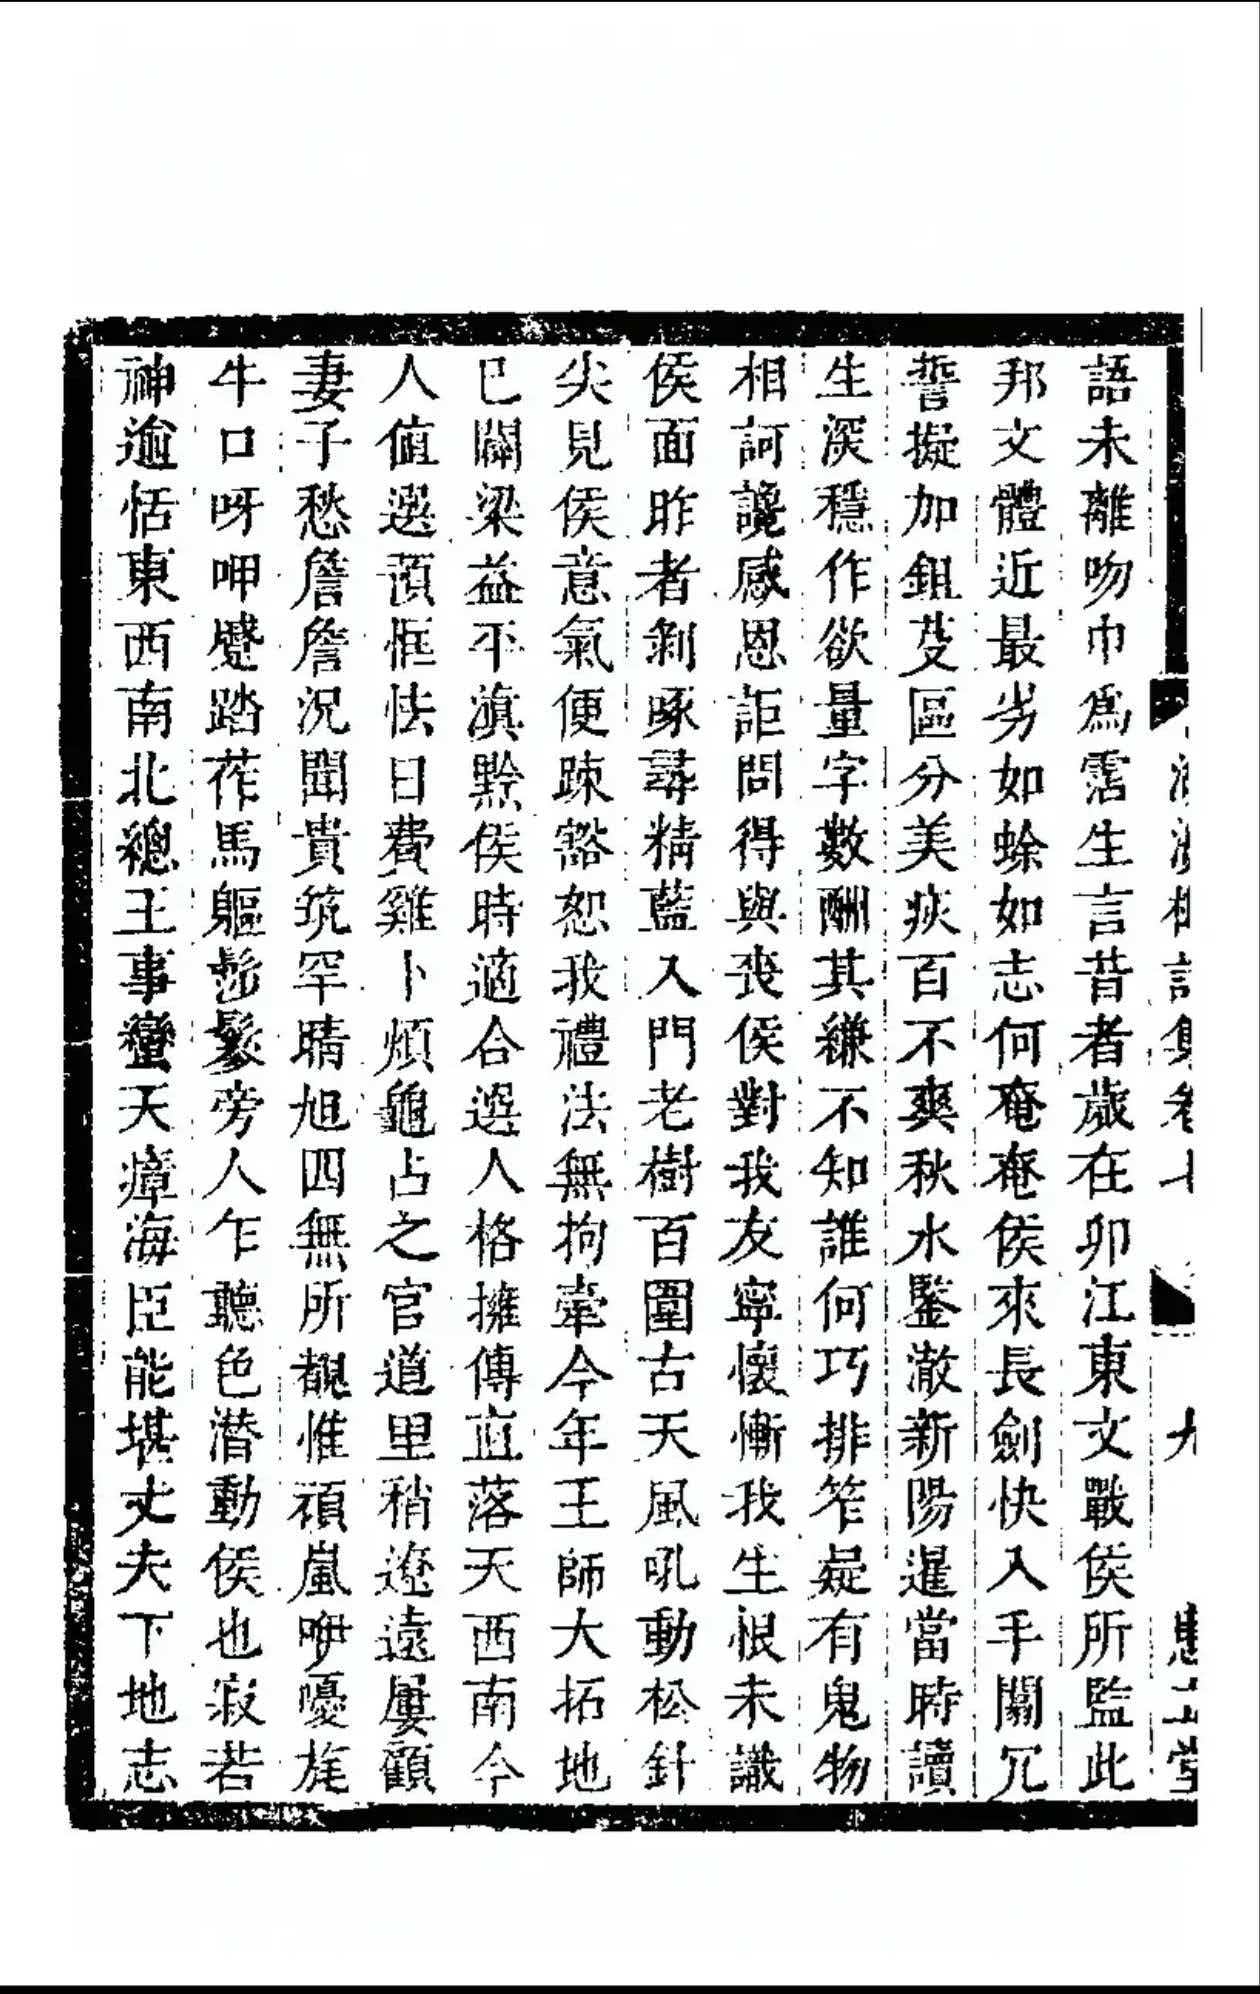 語未離吻巾為霑生言昔者歲在卯江東文戰侯所監此
邦文體近最劣如蜍如志何奄奄侯來長劍快入手闢冗
誓擬加鉏芟區分美疢百不爽秋水鑒澈新陽暹當時讀
生深穩作欲量字數酬其縑不知誰何巧排笮疑有鬼物
相訶讒感恩詎問得與喪侯對我友寧懷慚我生恨未識
侯面昨者剝啄尋精藍入門老樹百圍古天風吼動松針
尖見侯意氣便疎豁恕我禮法無拘牽今年王師大拓地
已闢梁益平滇黔侯時適合選人格擁傳直落天西南今
人值選預恇怯日費雞卜煩龜占之官道里稍遼遠屢顧
妻子愁詹詹況聞貴筑罕晴旭四無所覩惟頑嵐咿嚘旄
牛口呀呷蹙踏莋馬軀髟鬖旁人乍聽色潛動侯也寂若
神逾恬東西南北總王事蠻天瘴海臣能堪丈夫下地志
集卷七
九
堂